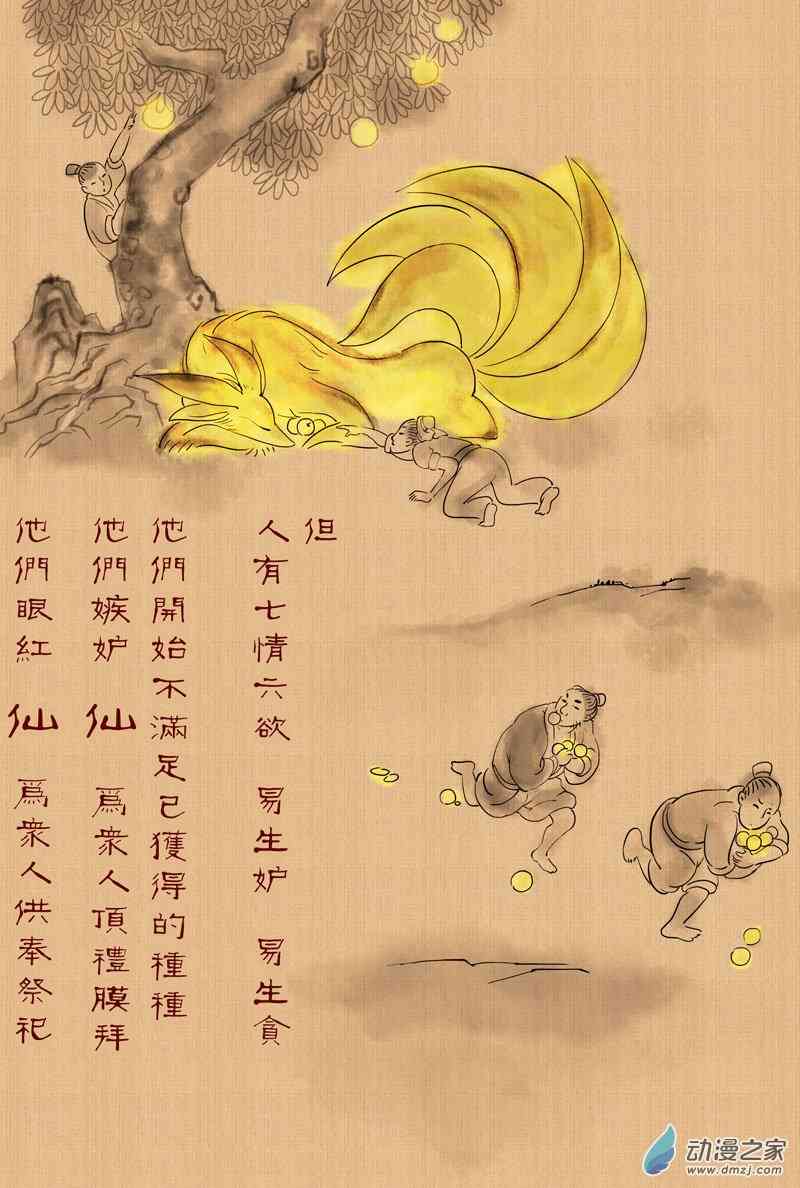 但
人有七情六欲 易生妒 易生貪
他們開始不滿足已獲得的種種
他們嫉妒 仙 爲衆人頂禮膜拜
他們眼紅 仙 爲衆人供奉祭祀
动漫之家
www.dmzj.com